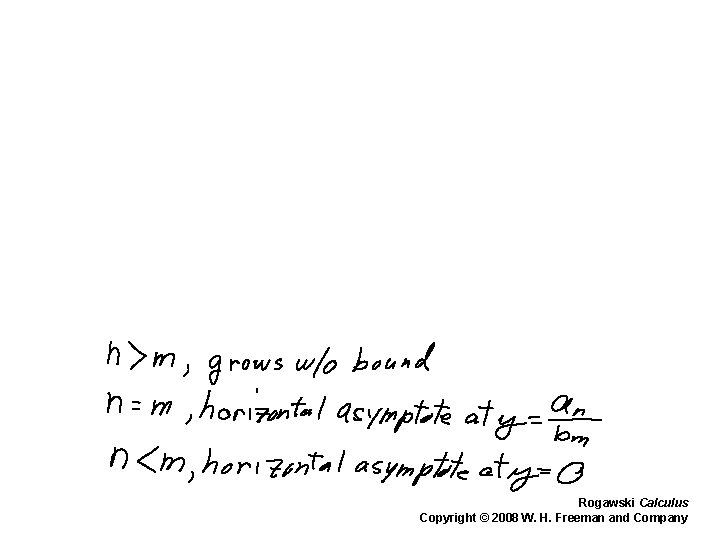 n>m, grows w/o bound
n=m, horizontal asymptote at y= an/bm
n<m, horizontal asymptote at y=0
Rogawski Calculus
Copyright © 2008 W. H. Freeman and Company